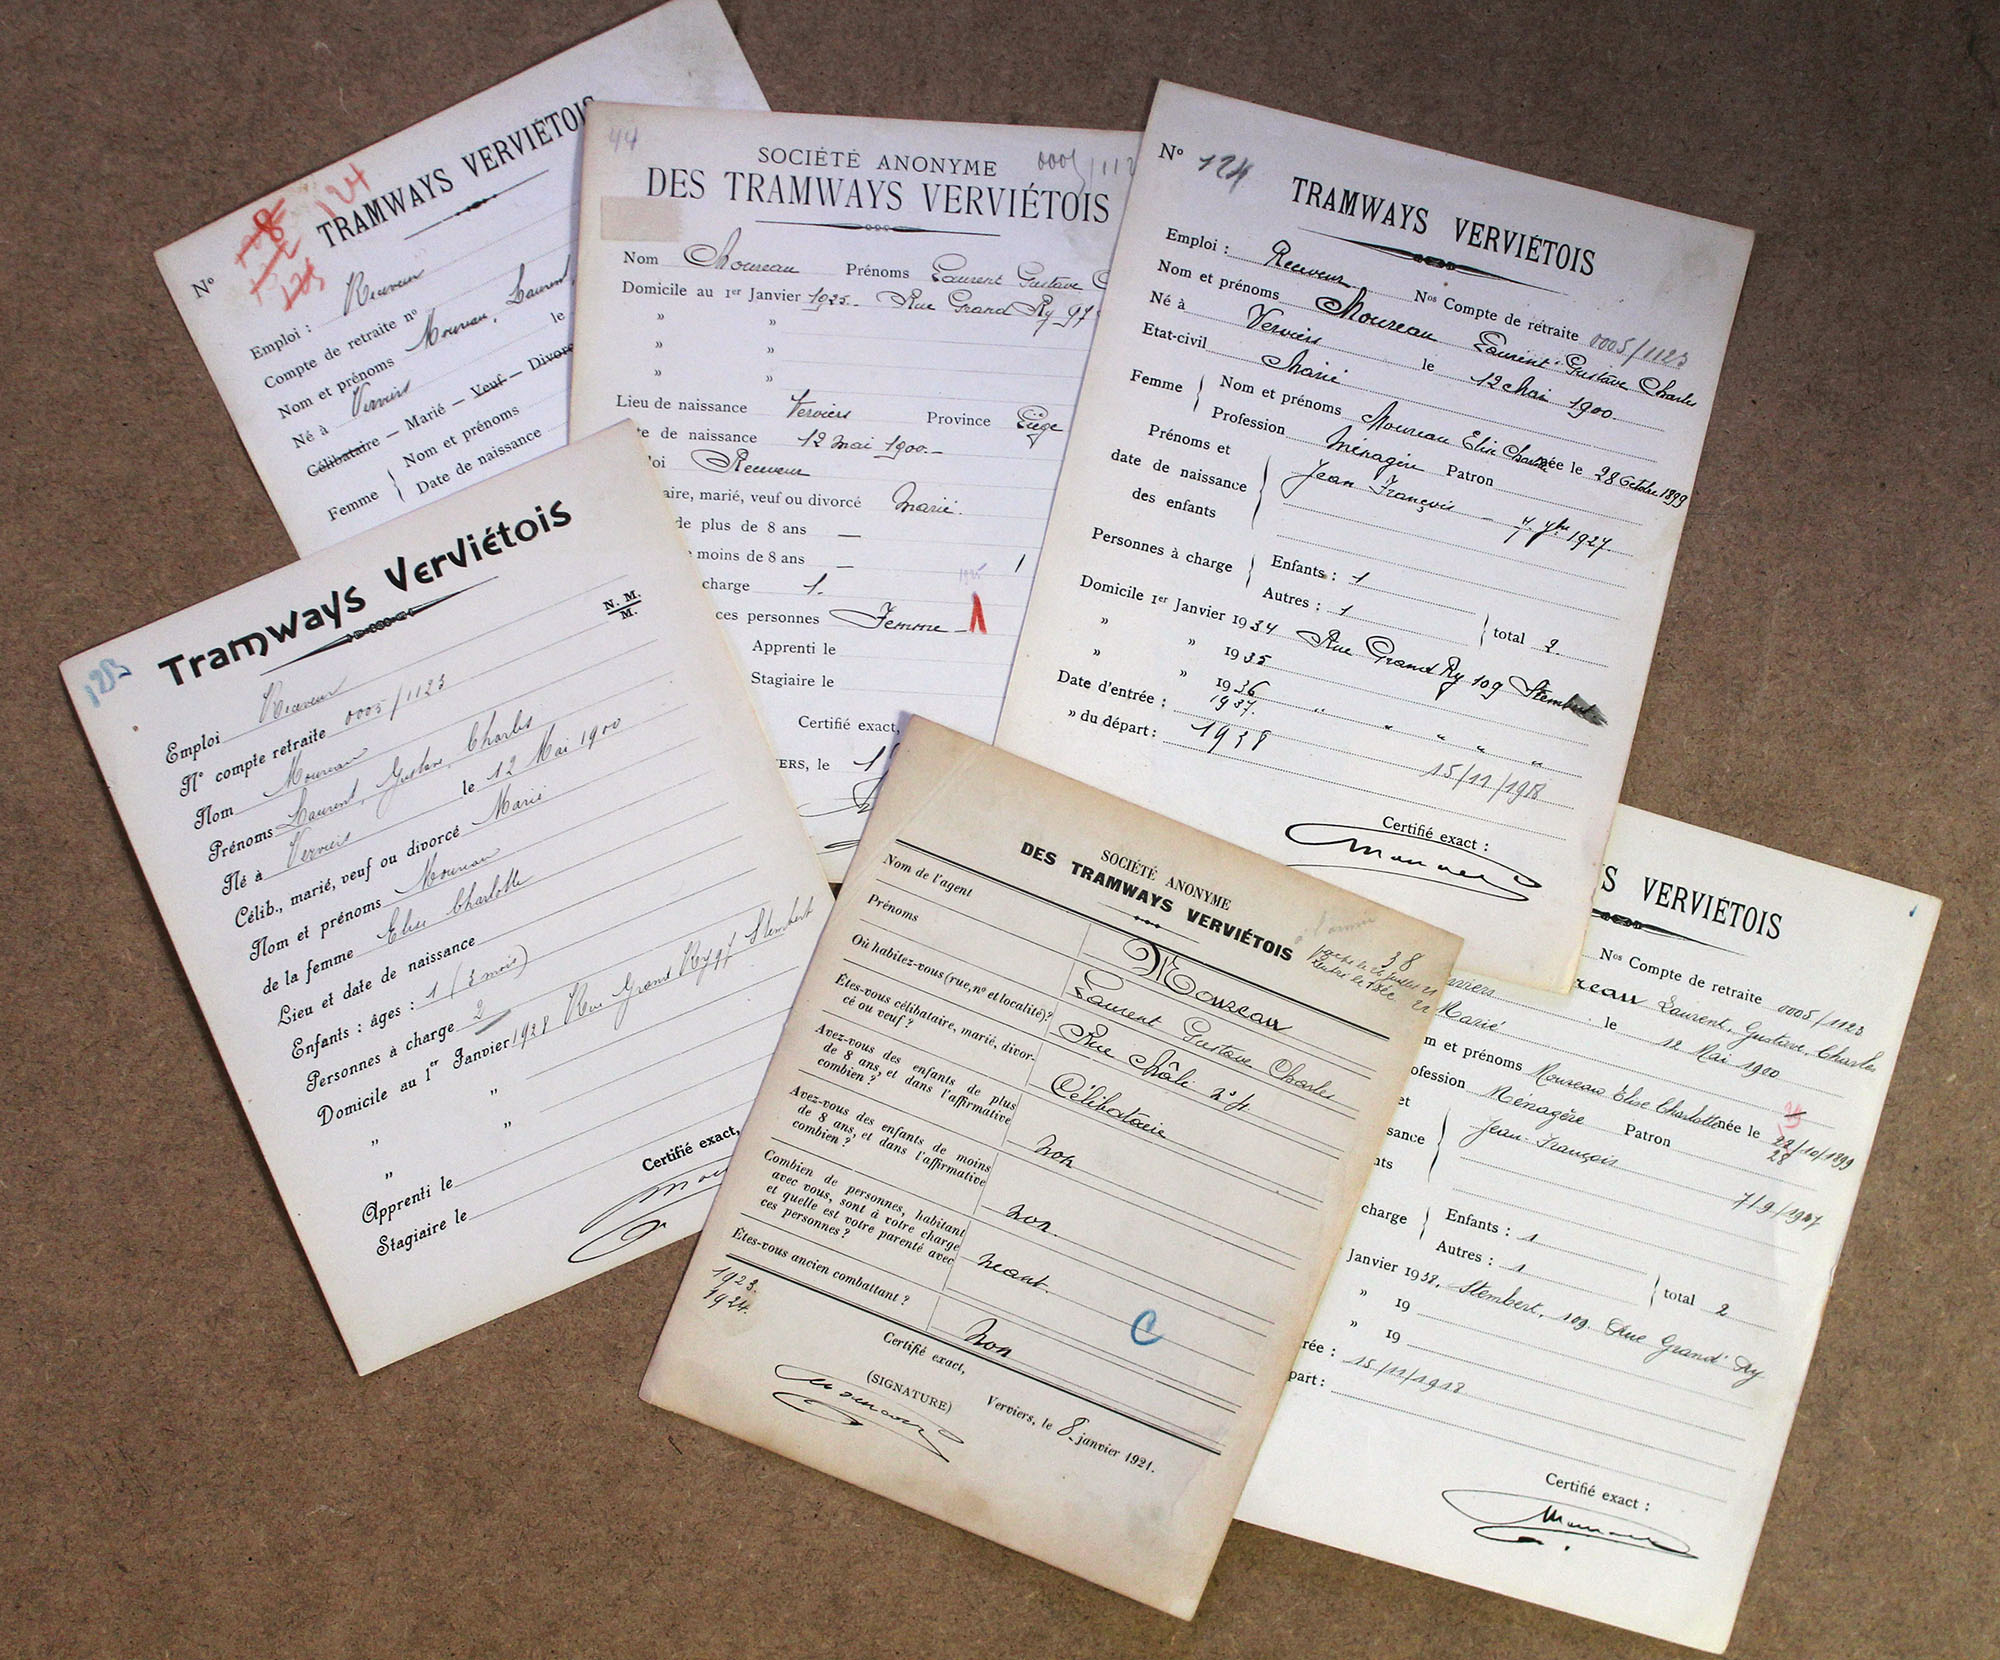 TRAMWAYS VERVIÉTOIS
Nº 124
Emploi : Receveur
Compte de retraite nº
Nom et prénoms Moureau, Laurent,
Né à Verviers le
Célibataire — Marié — Veuf — Divorc
Femme { Nom et prénoms
Date de naissance
44
SOCIÉTÉ ANONYME
DES TRAMWAYS VERVIÉTOIS
0005/112
Nom Moureau Prénoms Laurent Gustave C
Domicile au 1er Janvier 1925 - Rue Grand Ry 97
» »
» »
» »
Lieu de naissance Verviers Province Liège
te de naissance 12 mai 1900.-
loi Receveur
aire, marié, veuf ou divorcé Marié.
de plus de 8 ans —
moins de 8 ans — 1
charge 1.
ces personnes Femme 1
Apprenti le
Stagiaire le
Certifié exact,
IERS, le 1
Nº 124
TRAMWAYS VERVIÉTOIS
Emploi : Receveur Nos Compte de retraite 0005/1123
Nom et prénoms Moureau Laurent Gustave Charles
Né à Verviers le 12 Mai 1900
Etat-civil Marié
Femme { Nom et prénoms Moureau Elise Charlotte née le 28 Octobre 1899
Profession Ménagère Patron
Prénoms et
date de naissance
des enfants
{ Jean François — 7 7bre 1927
Personnes à charge { Enfants : 1
Autres : 1 } total 2
Domicile 1er Janvier 1934 Rue Grand Ry 109 Stembert
» » 1935
» » 1936 " " " "
1937.
Date d'entrée : 1938 15/11/1918
» du départ :
Certifié exact :
123
Tramways Verviétois
N. M.
M.
Emploi Receveur
Nº compte retraite 0005/1123
Nom Moureau
Prénoms Laurent, Gustave, Charles
Né à Verviers le 12 Mai 1900
Célib., marié, veuf ou divorcé Marié
Nom et prénoms Moureau
de la femme Elise Charlotte
Lieu et date de naissance
Enfants : âges : 1 (3 mois)
Personnes à charge 2
Domicile au 1er Janvier 1928 Rue Grand Ry 97 Stembert
» »
» »
Apprenti le
Stagiaire le
Certifié exact,
SOCIÉTÉ ANONYME
DES TRAMWAYS VERVIÉTOIS
38
Nom de l'agent Moureau
Prénoms Laurent Gustave Charles
Où habitez-vous (rue, nº et localité)? Rue Châli 24
Êtes-vous célibataire, marié, divor-
cé ou veuf ? Célibataire
Avez-vous des enfants de plus
de 8 ans, et dans l'affirmative
combien ? Non
Avez-vous des enfants de moins
de 8 ans, et dans l'affirmative
combien ? Non.
Combien de personnes, habitant
avec vous, sont à votre charge
et quelle est votre parenté avec
ces personnes ? Néant.
Êtes-vous ancien combattant ? Non
C
1923.
1924.
Certifié exact,
(SIGNATURE)
Verviers, le 8 janvier 1921.
S VERVIÉTOIS
Nos Compte de retraite 0005/1123
reau Laurent, Gustave, Charles
rviers le 12 Mai 1900
Marié
m et prénoms Moureau Elise Charlotte née le 28/10/1899
ofession Ménagère Patron
et
sance
nts
{ Jean-François 7/9/1927
charge { Enfants : 1
Autres : 1 } total 2
Janvier 1938, Stembert, 109 Rue Grand' Ry
» 19
» 19
rée : 15/11/1918
part :
Certifié exact :